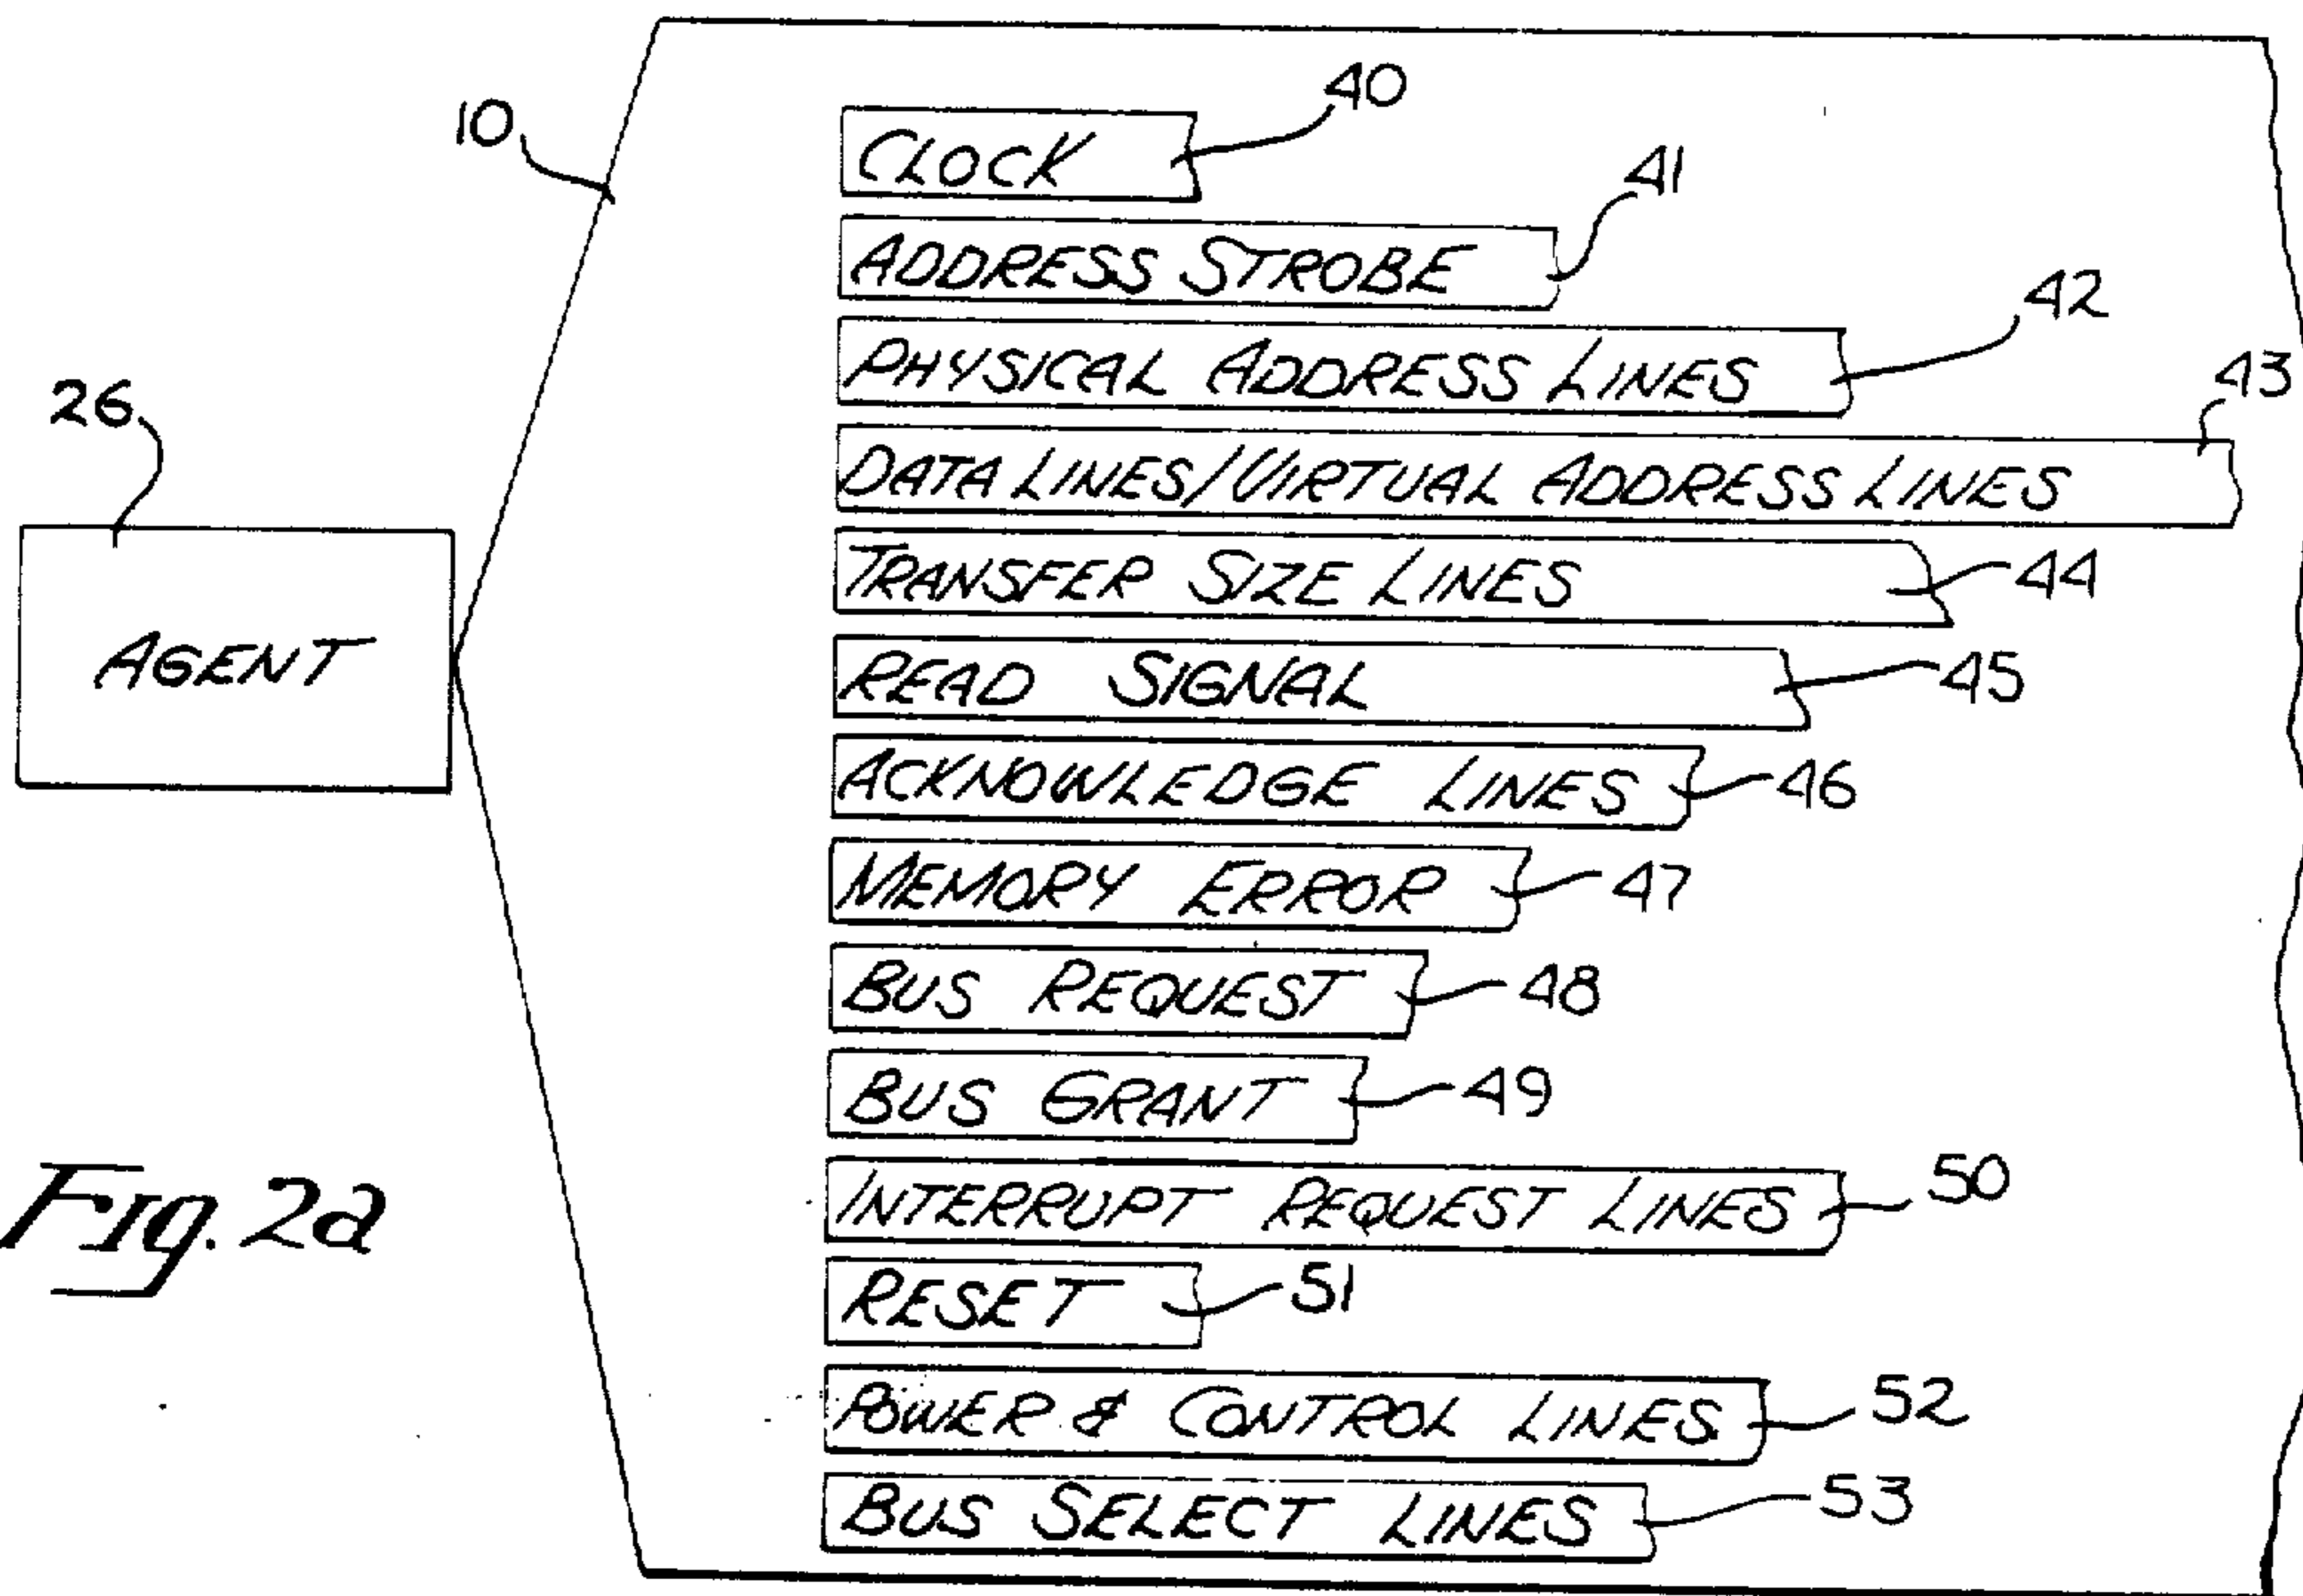 10
CLOCK 40
ADDRESS STROBE 41
PHYSICAL ADDRESS LINES 42
DATA LINES/VIRTUAL ADDRESS LINES 43
26
AGENT
TRANSFER SIZE LINES 44
READ SIGNAL 45
ACKNOWLEDGE LINES 46
MEMORY ERROR 47
BUS REQUEST 48
BUS GRANT 49
INTERRUPT REQUEST LINES 50
RESET 51
POWER & CONTROL LINES 52
BUS SELECT LINES 53
Fig. 2a